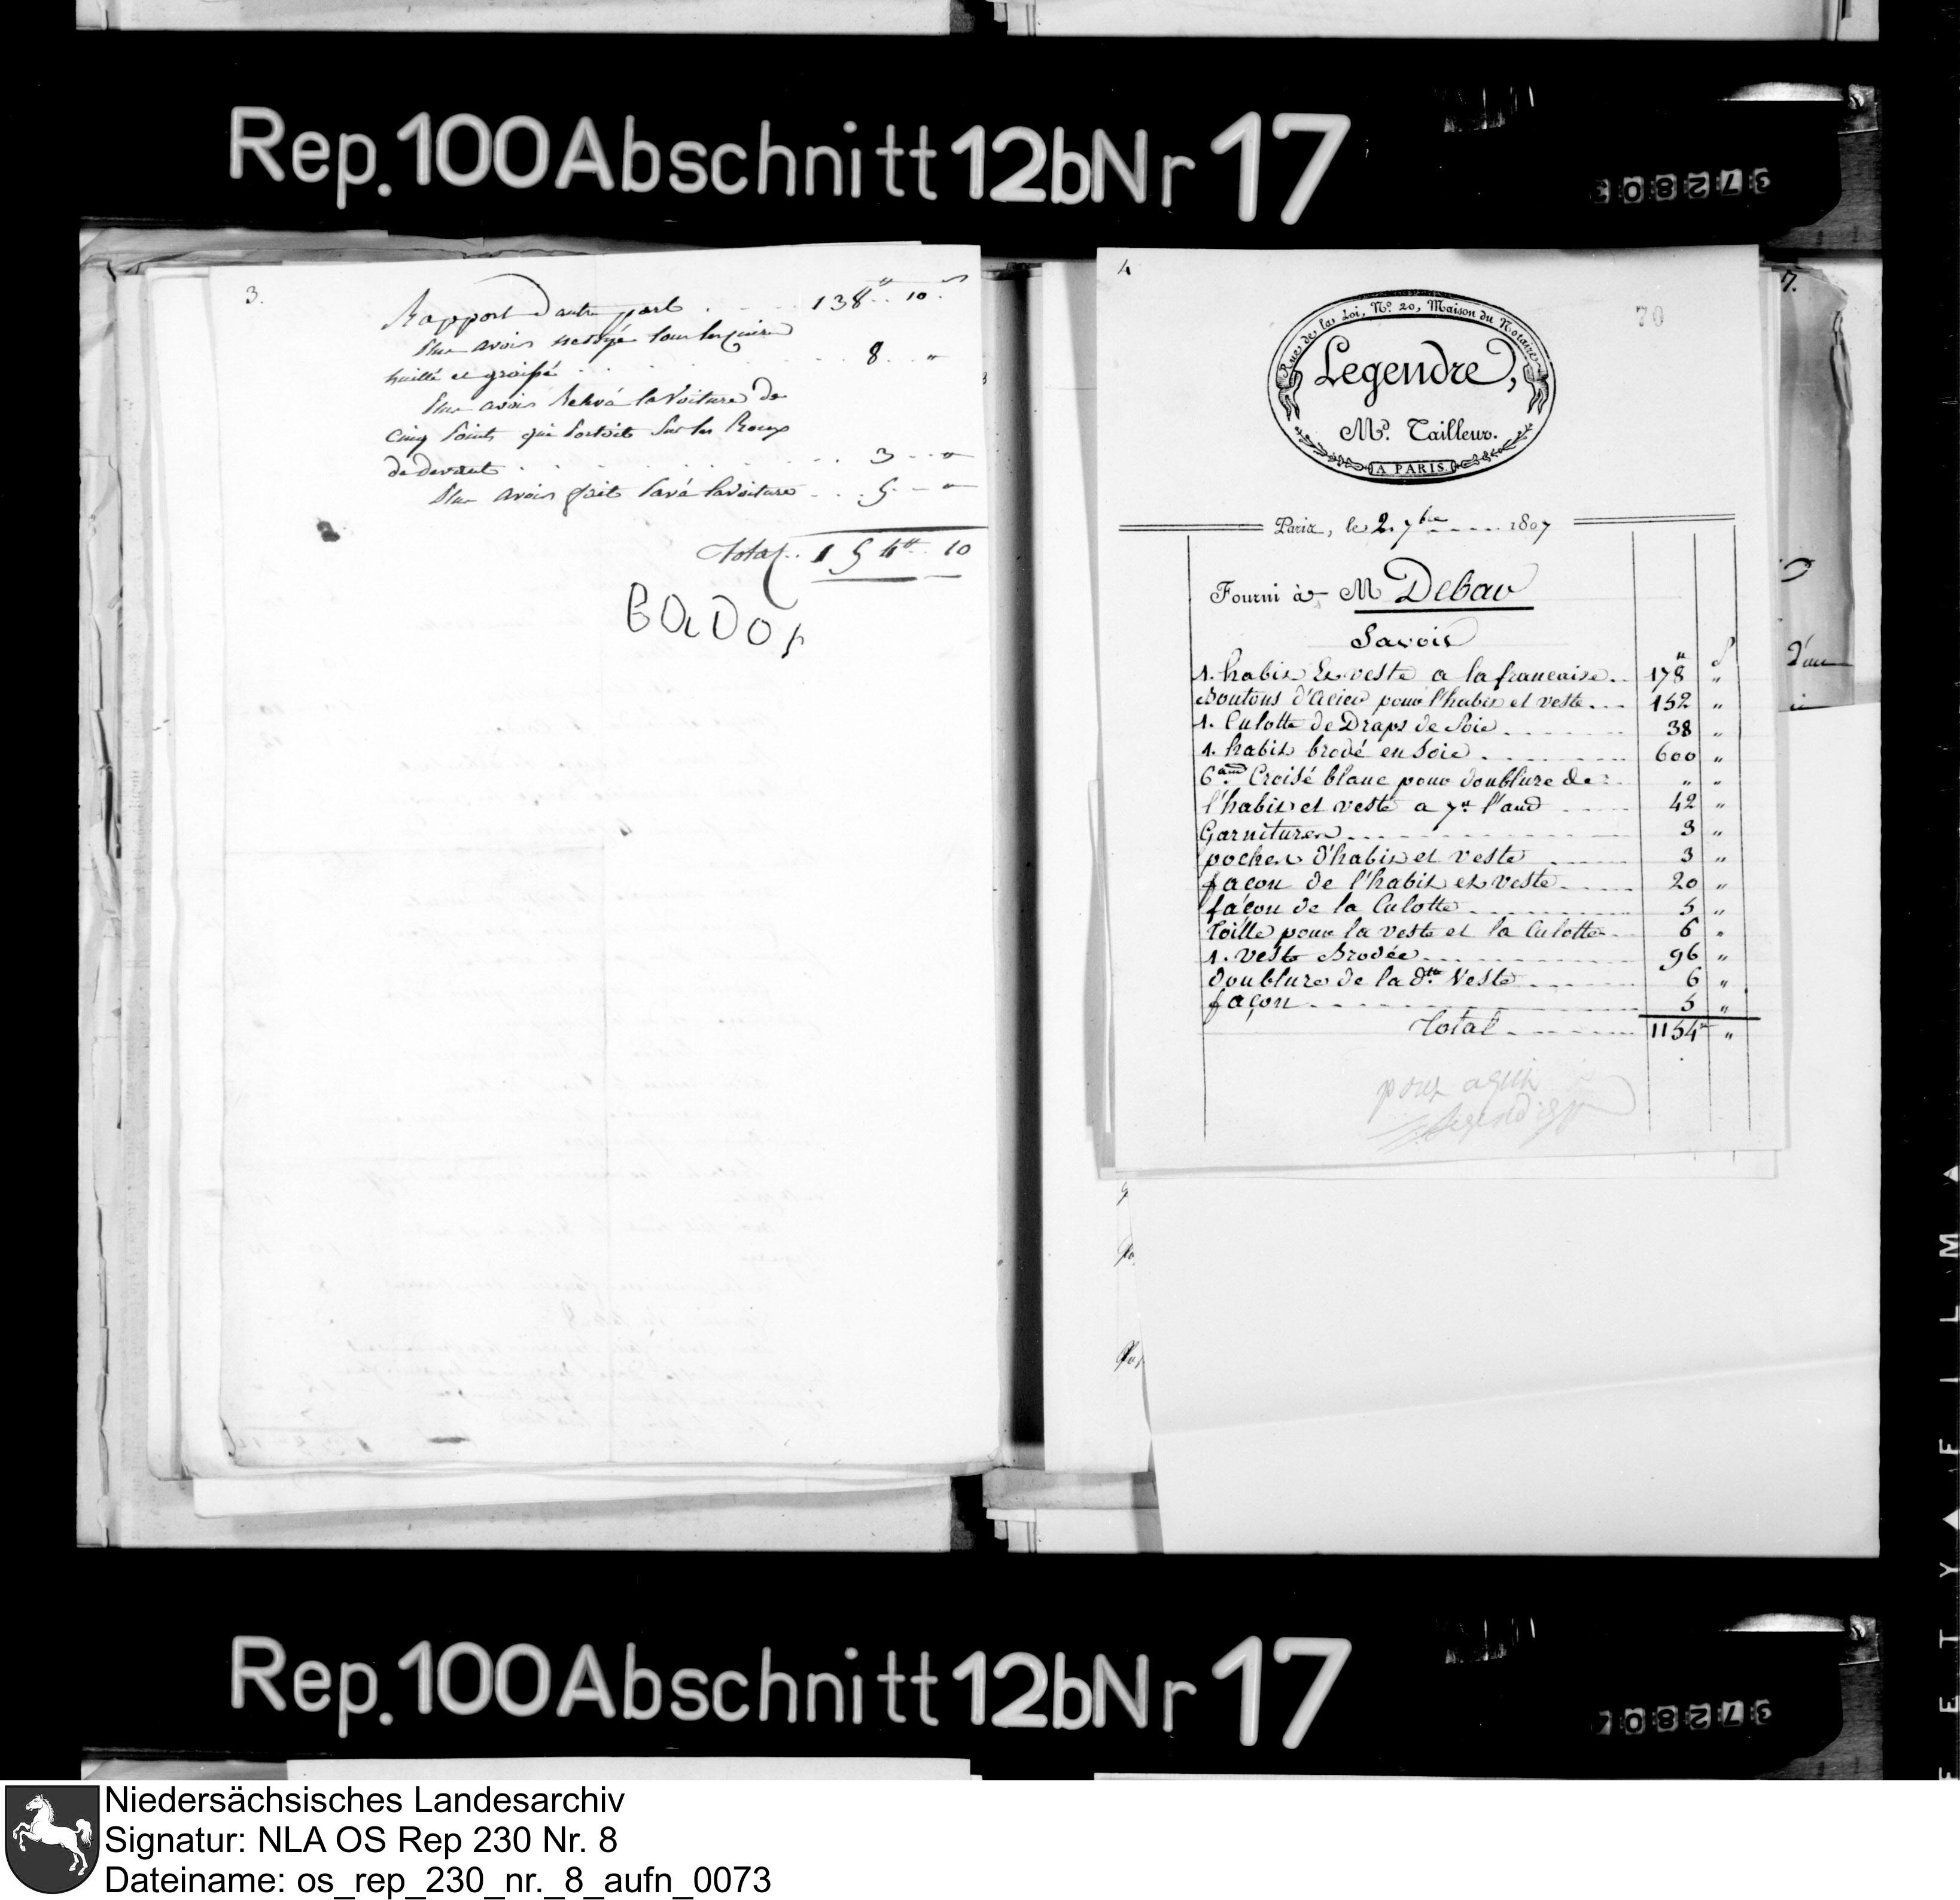 Rep. 100 Abschnitt 12b Nr 17
372803
3.
Rapport d'autre part . . . 138 # .. 10 s
Plus avoir nettoyé tous les cuires
huillé et graissé . . . 8 .. "
Plus avoir Relevá la Voiture de
Cinq points qui portoit sur les Roues
de devant . . . 3 .. "
Plus avoir fait lavá la Voiture . . . 5 .. "
Total .. 154 # .. 10
4
70
Rue de la Loi, No. 20, Maison du Notaire
Legendre,
Md. Tailleur.
A PARIS.
Paris, le 2. 7bre 1807
Fourni à M Debar
Savoir
1. habit Et veste a la francaise .. 178 "
Boutons d'Acier pour l'habit et veste ... 152 "
1. Culotte de Draps de Soie ... 38 "
1. habit brodé en Soie ... 600 "
6 aud Croisé blanc pour doublure de " "
l'habit et veste a 7# l'aud ... 42 "
Garnitures ... 3 "
poches d'habit et veste ... 3 "
facon de l'habit et veste ... 20 "
facon de la Culotte ... 5 "
toille pour la veste et la Culotte ... 6 "
1. veste Brodée ... 96 "
doublure de la dte Veste ... 6 "
façon ... 5 "
Total ... 1154 # "
pour aquit
Legendre
7.
d'un
Rep. 100 Abschnitt 12b Nr 17
AFILMA
FETYAFILMA
Niedersächsisches Landesarchiv
Signatur: NLA OS Rep 230 Nr. 8
Dateiname: os_rep_230_nr._8_aufn_0073